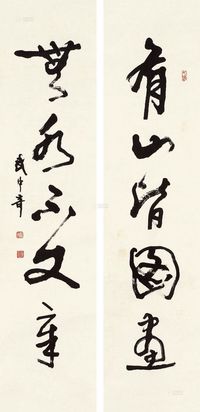 有山皆图画
無水不文章
武中奇